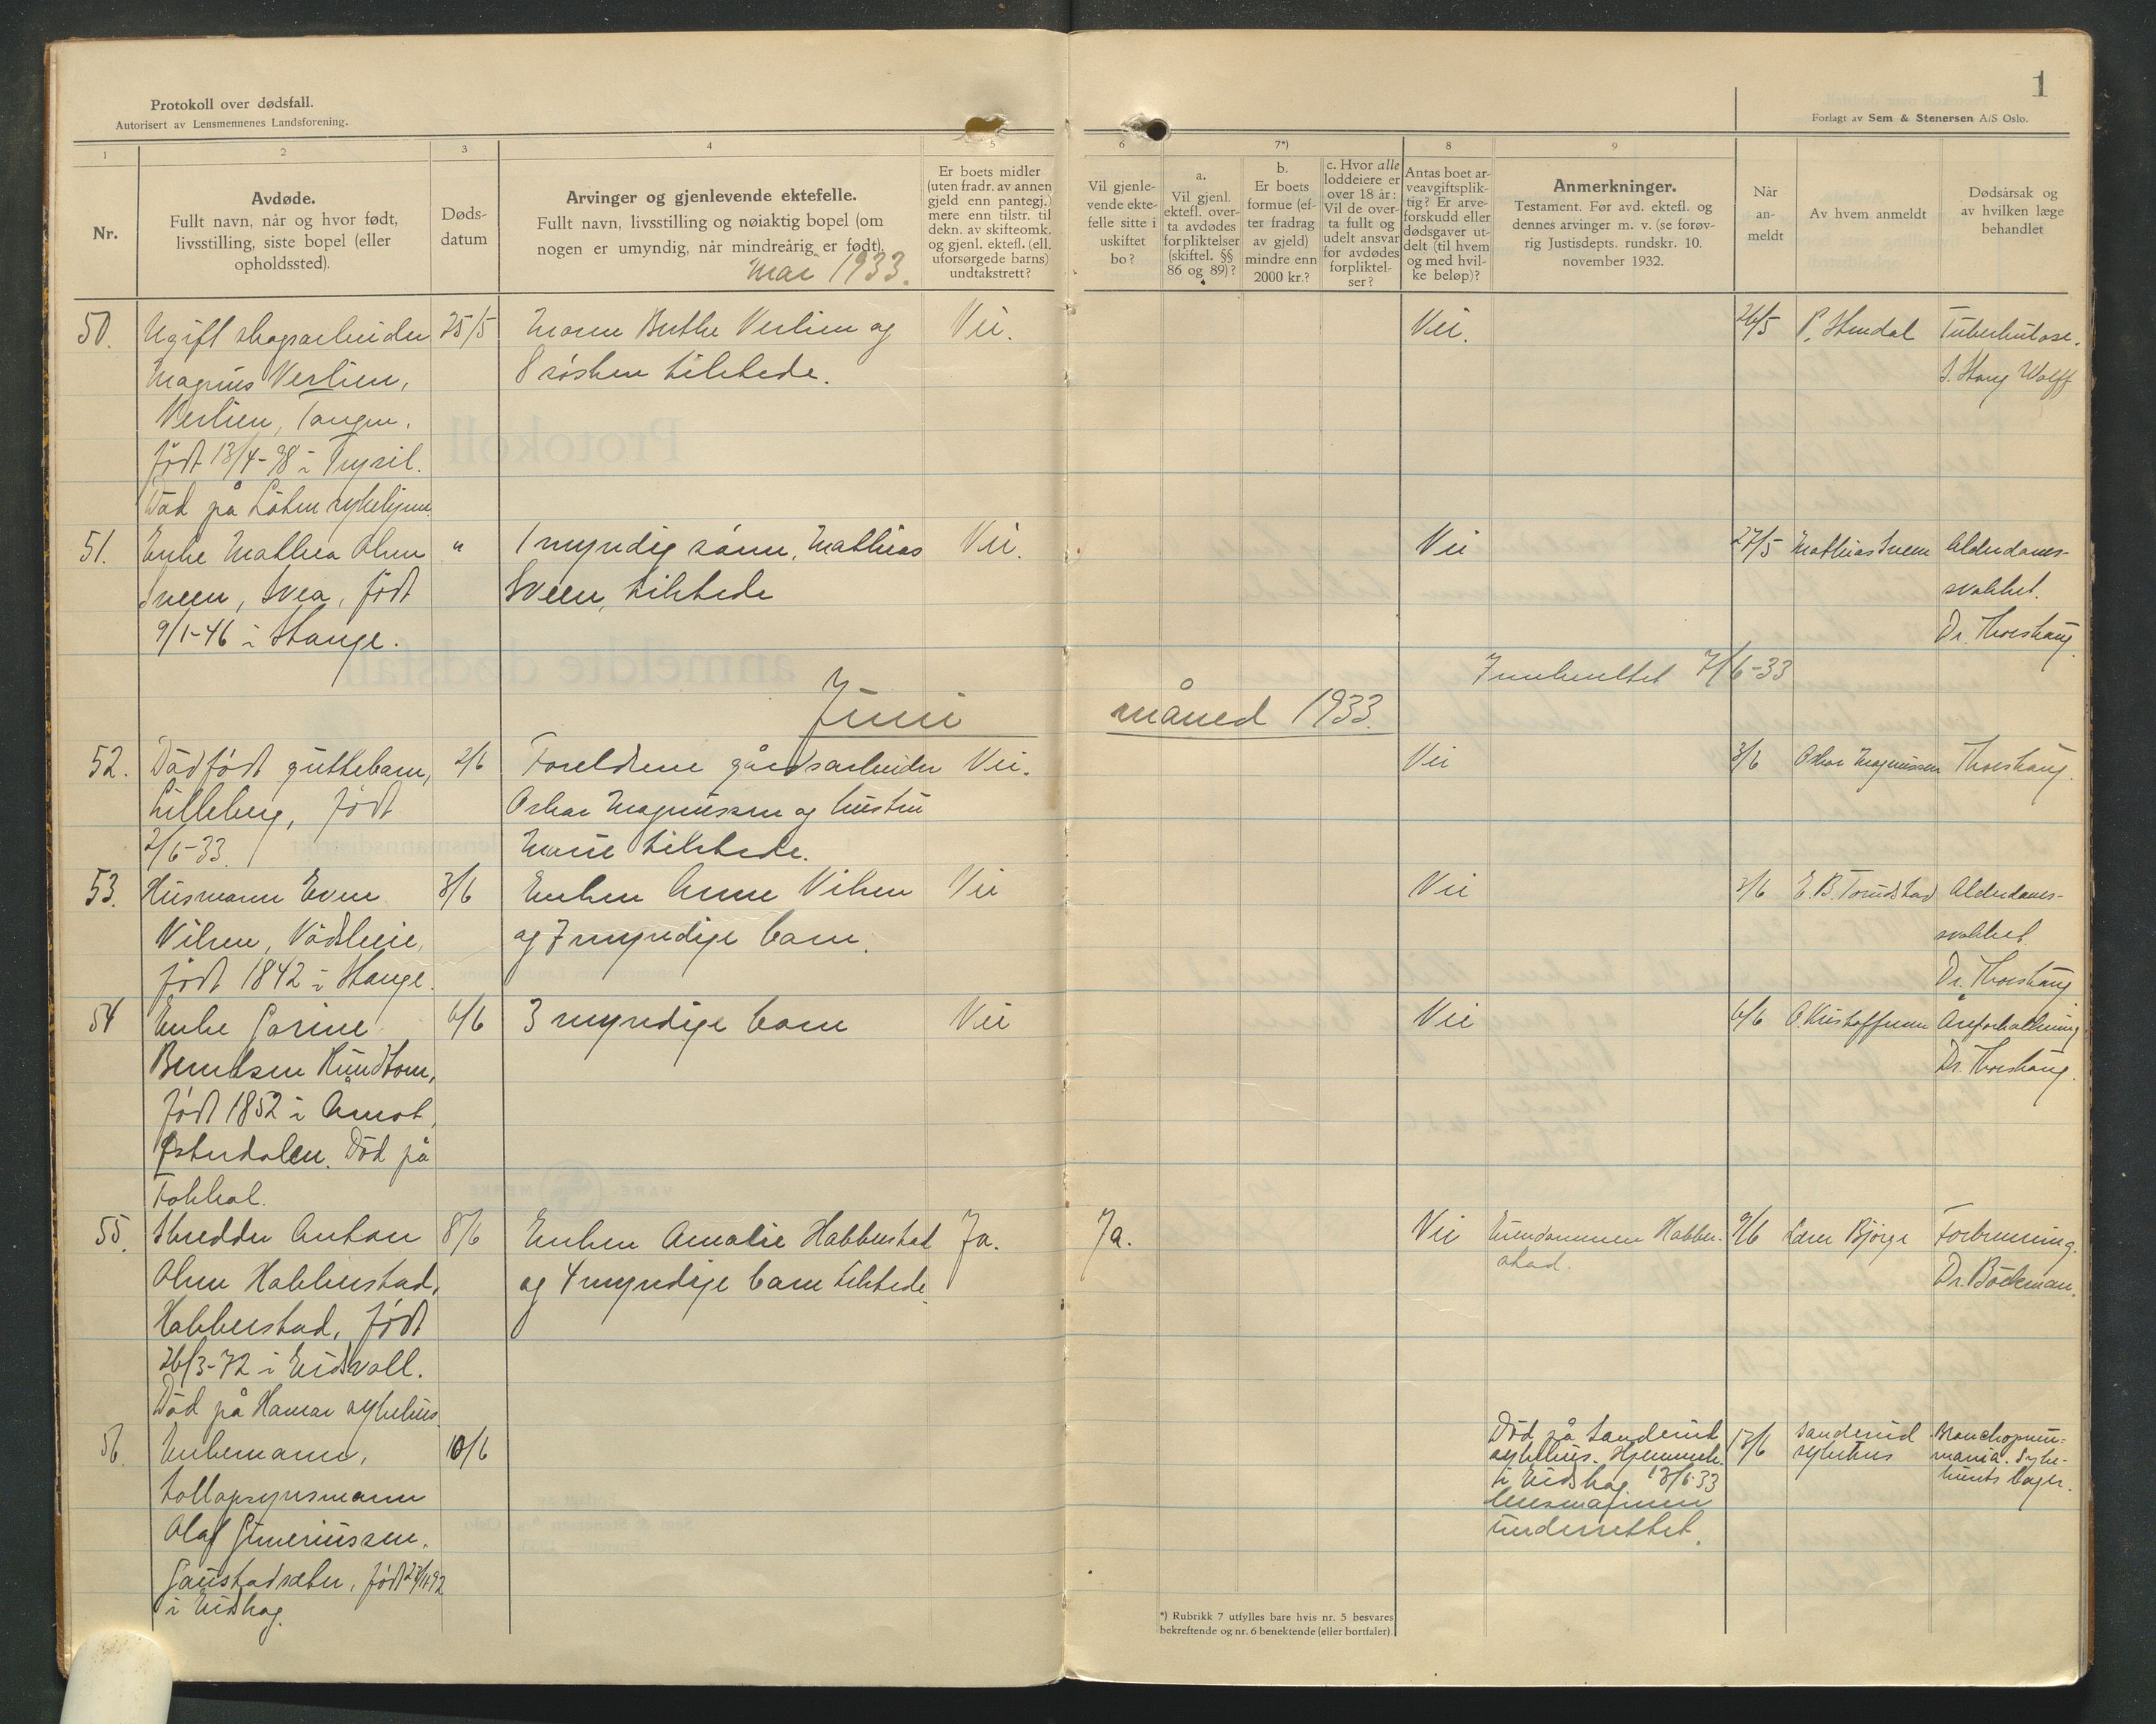 Protokoll over dødsfall.
Autorisert av Lensmennenes Landsforening.
1
Forlagt av Sem & Stenersen A/S Oslo.
1
2
3
4
5
6
7*)
8
9
Nr.
Avdøde.
Fullt navn, når og hvor født,
livsstilling, siste bopel (eller
opholdssted).
Døds-
datum
Arvinger og gjenlevende ektefelle.
Fullt navn, livsstilling og nøiaktig bopel (om
nogen er umyndig, når mindreårig er født).
Mai 1933.
Er boets midler
(uten fradr. av annen
gjeld enn pantegj.)
mere enn tilstr. til
dekn. av skifteomk.
og gjenl. ektefl. (ell.
uforsørgede barns)
undtakstrett?
Vil gjenle-
vende ekte-
felle sitte i
uskiftet
bo?
a.
Vil gjenl.
ektefl. over-
ta avdødes
forpliktelser
(skiftel. §§
86 og 89)?
b.
Er boets
formue (ef-
ter fradrag
av gjeld)
mindre enn
2000 kr.?
c. Hvor alle
loddeiere er
over 18 år:
Vil de over-
ta fullt og
udelt ansvar
for avdødes
forpliktel-
ser?
Antas boet ar-
veavgiftsplik-
tig? Er arve-
forskudd eller
dødsgaver ut-
delt (til hvem
og med hvil-
ke beløp)?
Anmerkninger.
Testament. Før avd. ektefl. og
dennes arvinger m. v. (se forøv-
rig Justisdepts. rundskr. 10.
november 1932.
Når
an-
meldt
Av hvem anmeldt
Dødsårsak og
av hvilken læge
behandlet
50. Ugift skogsarbeider 25/5 Moren Berthe Verlien og Nei. Nei. 26/5 P. Stendal Tuberkulose.
Magnus Verlien, 8 søsken tilstede. S. Stang Wolff
Verlien, Tangen.
født 13/4-98 i Trysil.
Død på Løten sykehjem.
51. Enke Mathea Olsen " 1 myndig sønn, Mathias Nei. Nei 27/5 Mathias Sveen Alderdoms-
Sveen, Svea, født Sveen, tilstede svakhet.
9/1-46 i Stange. Dr. Thorshaug.
Innberettet 7/6-33
Juni måned 1933.
52. Dødfødt guttebarn, 2/6 Foreldrene gårdsarbeider Nei. Nei 3/6 Oskar Magnussen Thorshaug.
Lilleberg, født Oskar Magnussen og hustru
2/6-33. Marie tilstede.
53. Husmann Even 3/6 Enken Anne Vilsen Nei Nei 3/6 E. B. Tomdstad Alderdoms-
Vilsen, og 7 myndige barn. svakhet
født 1842 i Stange. Dr. Thorshaug
54 Enke Karine 6/6 3 myndige barn Nei Nei 6/6 O. Kristoffersen Åreforkalkning.
Berntsen Hundtom, Dr. Thorshaug.
født 1852 i Åmot,
Østerdalen. Død på
Fokhol.
55. Skredder Anton 8/6 Enken Amalie Habberstad Ja. Ja. Nei Eiendommen Habber- 9/6 Lærer Bjørge Forbrenning.
Olsen Habberstad, og 4 myndige barn tilstede. stad. Dr. Bøckman.
Habberstad, født
26/3-72 i Eidsvoll.
Død på Hamar sykehus.
56. Enkemann, 10/6 Død på Sanderud 13/6 Sanderud Bronchopneu-
tollopsynsmann sykehus. Hjemmeh. sykehus monia. Syke-
Olaf i Eidskog. 13/6-33 husets læger.
Gaustadsæter, født 27/11-92 lensmannen
i Eidskog. underrettet.
*) Rubrikk 7 utfylles bare hvis nr. 5 besvares
bekreftende og nr. 6 benektende (eller bortfaler).